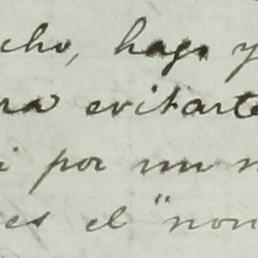 cho, hago y
ra evitarte
i por un n
es el "non